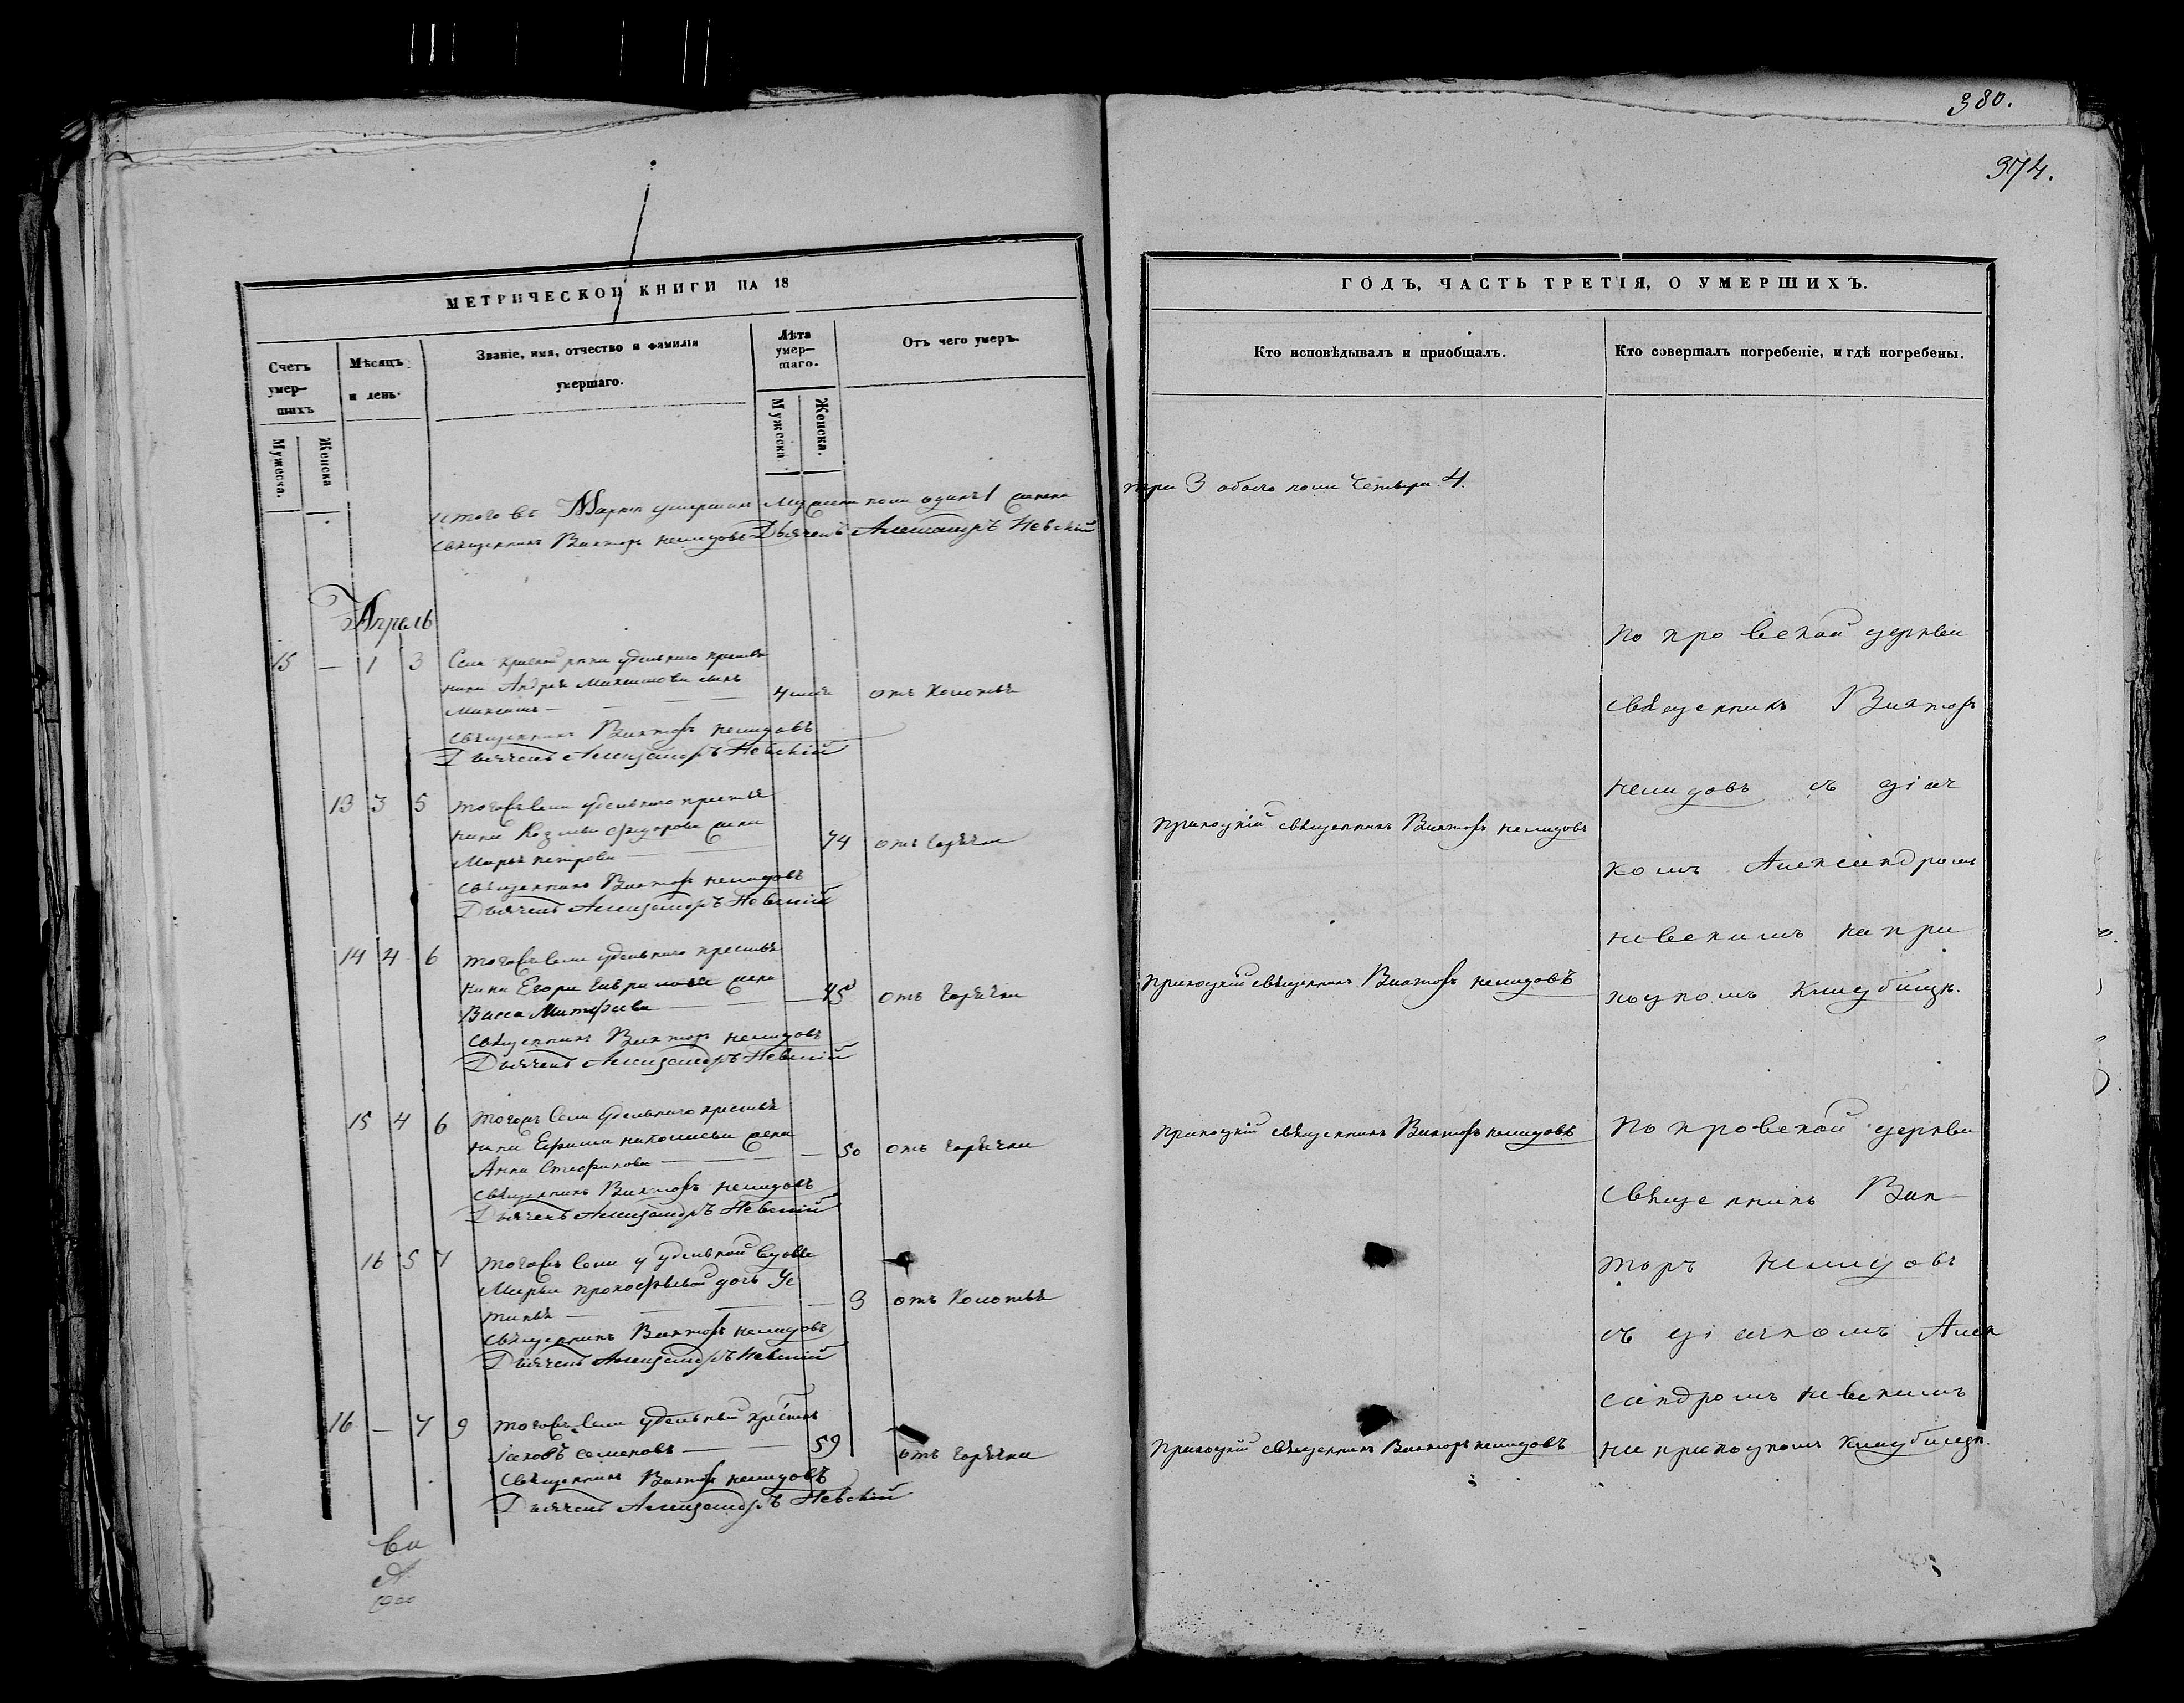 380.
374.
МЕТРИЧЕСКОЙ КНИГИ НА 18
Счетъ умер-шихъ
Мѣсяцъ и день.
Званіе, имя, отчество и фамилія
умершаго.
Лѣта умер-шаго.
Отъ чего умеръ.
Мужеска.
Женска
Мужеска.
Женска.
итого въ Мартѣ умершихъ Мужеска пола одинъ 1 женска
Священникъ Викторъ Немидовъ Дьячекъ Александръ Невскій
Апрель
15 — 1 3 Села удельнаго крестья
нина Андрея Максимова сынъ
Максимъ — 4 отъ Колотья
Священникъ Викторъ Немидовъ
Дьячекъ Александръ Невскій
13 3 5 тогожъ Села удельнаго крестья
нина Козмы Федорова жена
Марья Петрова — 74 отъ Горячки
Священникъ Викторъ Немидовъ
Дьячекъ Александръ Невскій
14 4 6 тогожъ Села удельнаго крестья
нина Егора Гаврилова жена
Васса Матфеева — 45 отъ Горячки
Священникъ Викторъ Немидовъ
Дьячекъ Александръ Невскій
15 4 6 тогожъ Села удельнаго крестья
нина Ефима Николаева жена
Анна Стефанова — 50 отъ горячки
Священникъ Викторъ Немидовъ
Дьячекъ Александръ Невскій
16 5 7 тогожъ Села у удельной вдовы
Марьи Прокофьевой дочь Ус
тинья — 3 отъ Колотья
Священникъ Викторъ Немидовъ
Дьячекъ Александръ Невскій
16 — 7 9 тогожъ Села удельный крестья
Іаковъ Семеновъ — 59 отъ Горячки
Священникъ Викторъ Немидовъ
Дьячекъ Александръ Невскій
ГОДЪ, ЧАСТЬ ТРЕТІЯ, О УМЕРШИХЪ.
Кто исповѣдывалъ и пріобщалъ.
Кто совершалъ погребеніе, и гдѣ погребены.
три 3 обоего пола Четыре 4.
Приходскій священникъ Викторъ Немидовъ
Приходскій священникъ Викторъ Немидовъ
Приходскій священникъ Викторъ Немидовъ
Приходскій священникъ Викторъ Немидовъ
Покровской церкви
Священникъ Викторъ
Немидовъ съ діач
комъ Александромъ
Невскимъ на при
ходскомъ Кладбищѣ.
Покровской церкви
Священникъ Вик-
торъ Немидовъ
съ діачкомъ Алек
сандромъ Невскимъ
на приходскомъ Кладбищѣ.